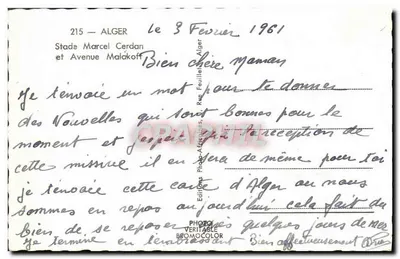 215 — ALGER
Stade Marcel Cerdan
et Avenue Malakoff
le 3 Fevrier 1961
Bien chère Maman
Je t'envoie un mot pour te donner
des Nouvelles qui sont bonnes pour le
moment et j'espère qu'à la réception de
cette missive il en sera de même pour toi
je t'envoie cette carte d'Alger ou nous
sommes en repos aujourd'hui cela fait du
bien de se reposer après quelques jours de mer
Je termine en t'embrassant Bien affectueusement
PHOTO
VERITABLE
BROMOCOLOR
Editions Photo-Africaines, Rue Feuillet, Alger